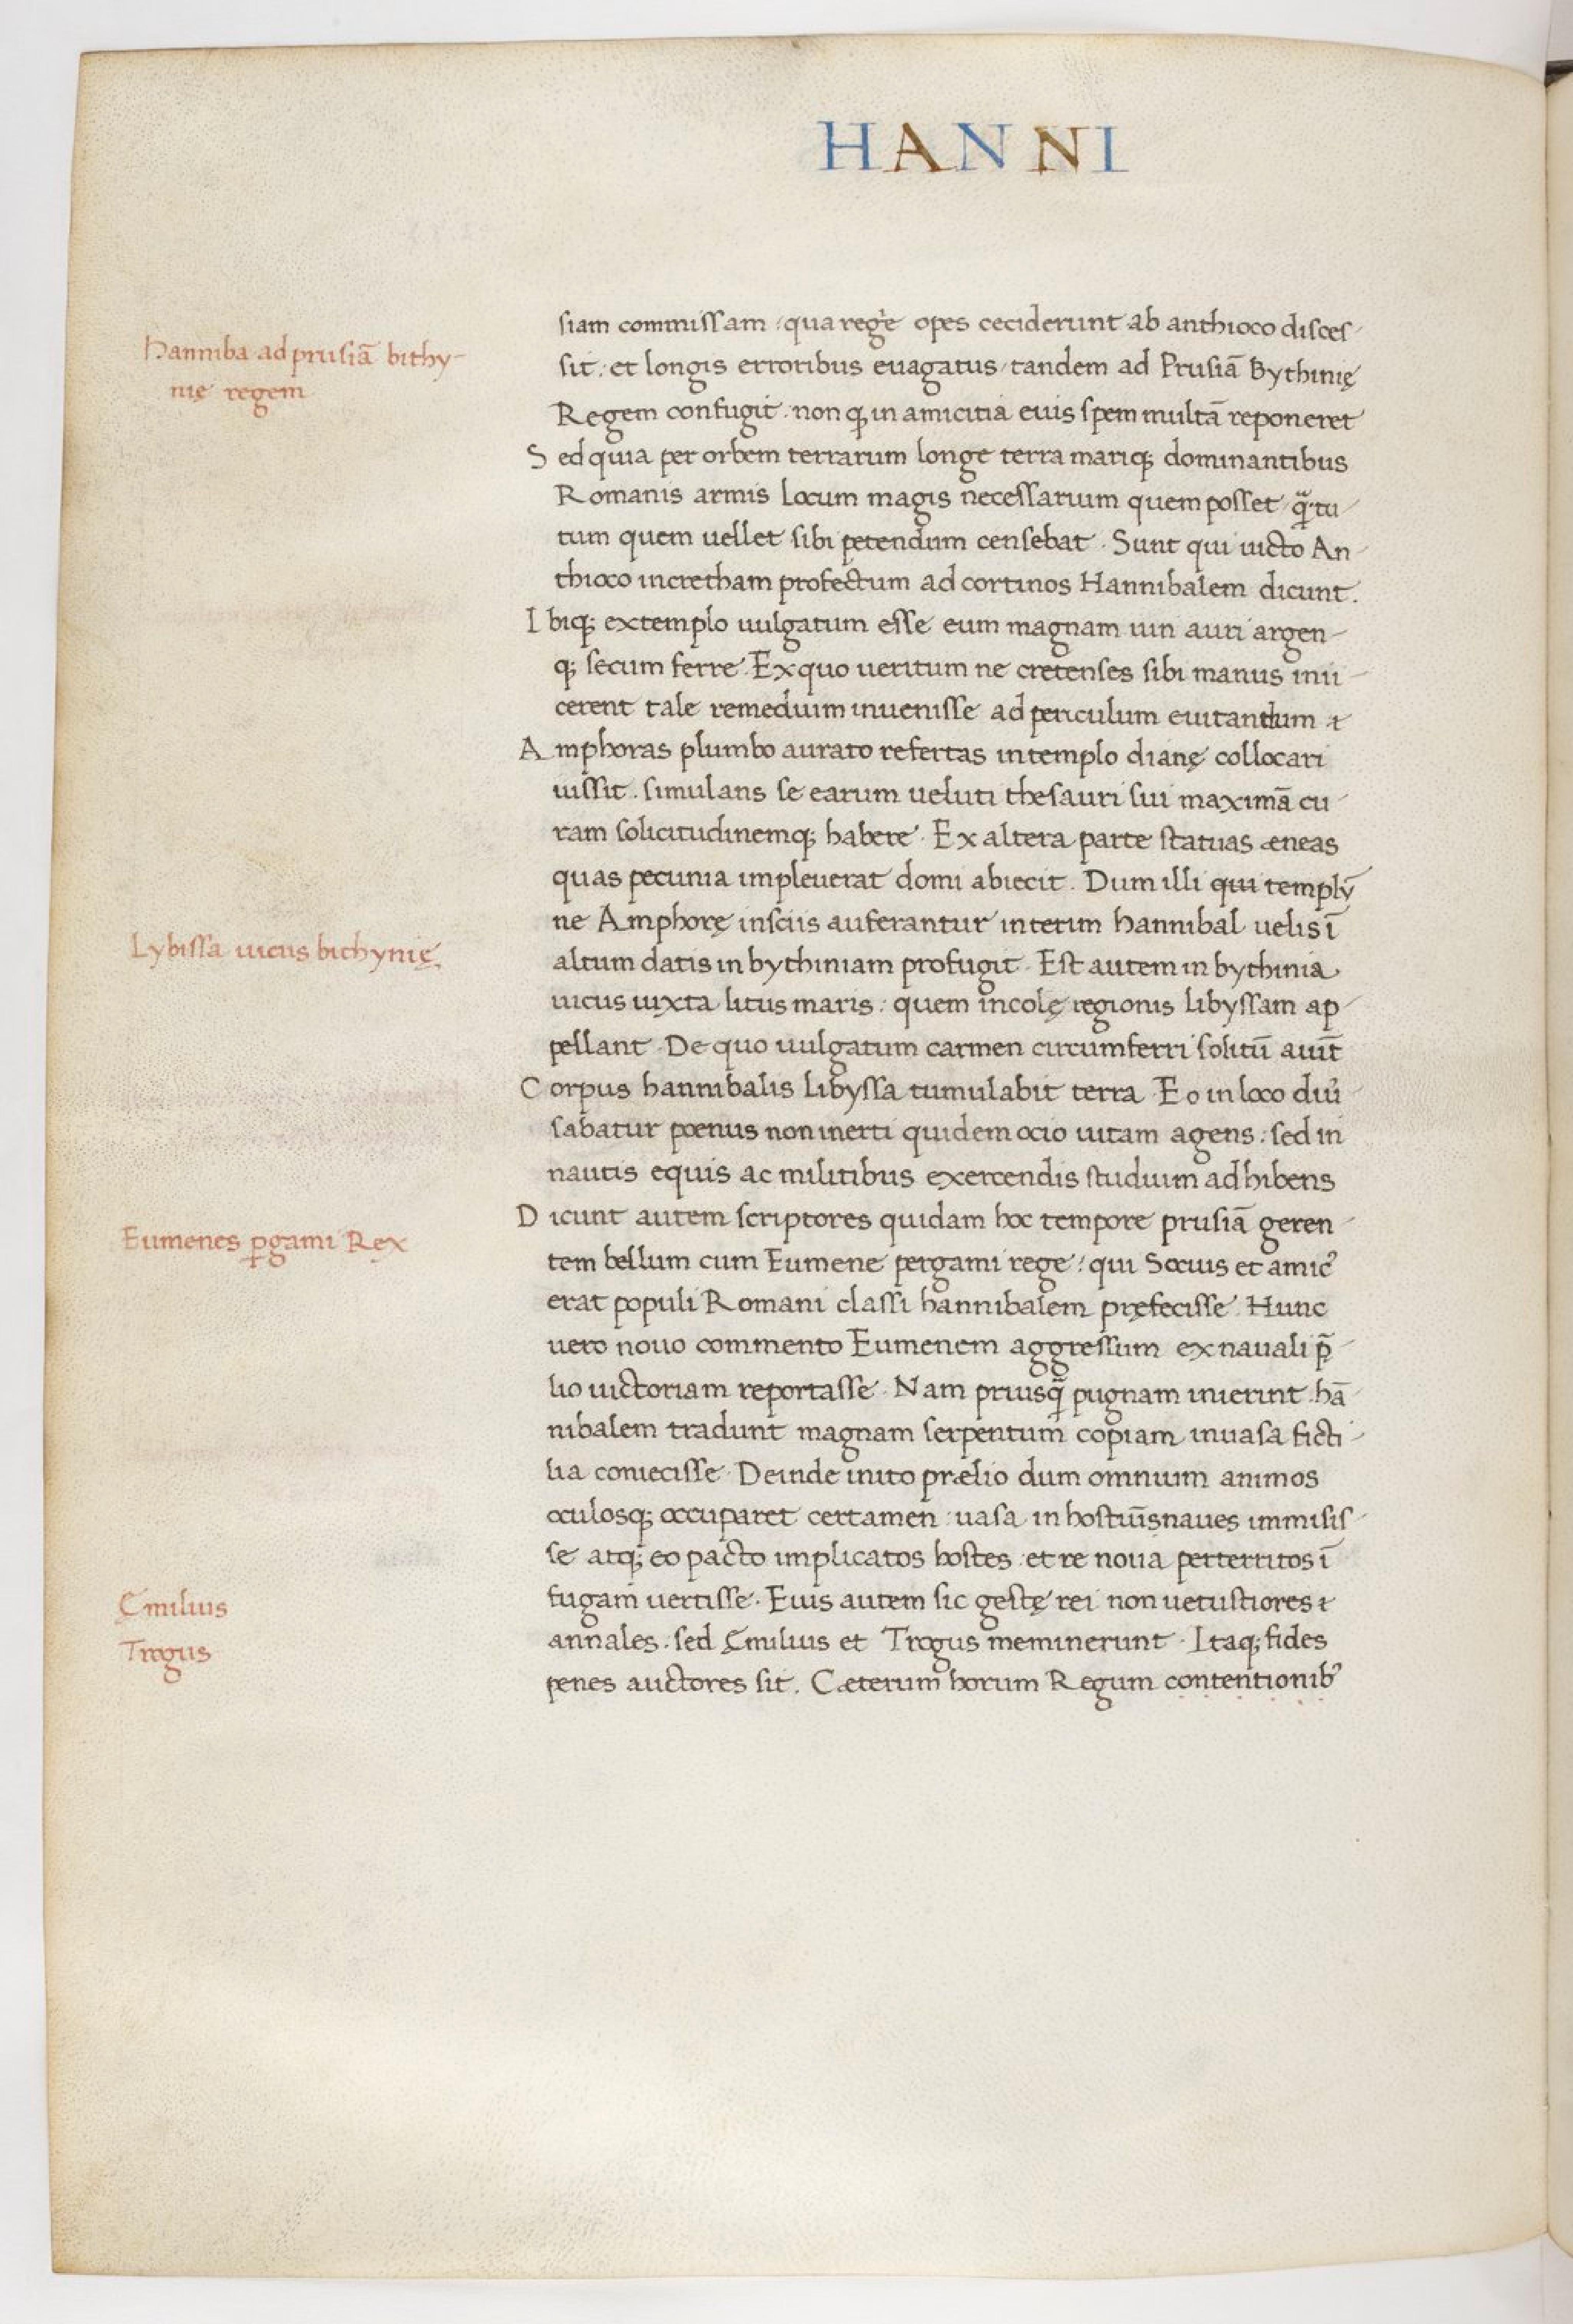 HANNI
siam commissam: qua regie opes ceciderunt ab anthioco disces-
Hanniba ad prusiā bithy-
nię regem
sit: et longis erroribus euagatus/ tandem ad Prusiā Bythinię
Regem confugit. non ꝙ in amicitia eius spem multā reponeret
Sed quia per orbem terrarum longe terra mariqꝫ dominantibus
Romanis armis locum magis necessarium quem posset/ q̄ tu-
tum quem uellet sibi petendum censebat. Sunt qui uicto An-
thioco incretham profectum ad cortinos Hannibalem dicunt.
Ibiqꝫ extemplo uulgatum esse eum magnam uin auri argen-
qꝫ secum ferre. Ex quo ueritum ne cretenses sibi manus inii-
cerent tale remedium inuenisse ad periculum euitandum
Amphoras plumbo aurato refertas in templo dianę collocari
iussit. simulans se earum ueluti thesauri sui maximā cu-
ram solicitudinemqꝫ habere. Ex altera parte statuas æneas
quas pecunia impleuerat domi abiecit. Dum illi qui templū
ne Amphorę insciis auferantur interim hannibal uelis ī
Lybissa uicus bithynię.
altum datis in bythiniam profugit. Est autem in bythinia
uicus iuxta litus maris: quem incolę regionis libyssam ap-
pellant. De quo uulgatum carmen circumferri solitū auiūt
Corpus hannibalis Libyssa tumulabit terra. Eo in loco diu-
sabatur poenus non inerti quidem ocio uitam agens: sed in
nautis equis ac militibus exercendis studium adhibens
Dicunt autem scriptores quidam hoc tempore prusiā geren-
Eumenes ꝑgami Rex
tem bellum cum Eumene pergami rege: qui Socius et amicꝰ
erat populi Romani classi hannibalem pręfecisse. Hunc
uero nouo commento Eumenem aggressum ex nauali p̄-
lio uictoriam reportasse. Nam priusq̄ pugnam inierint. hā-
nibalem tradunt magnam serpentum copiam in uasa ficti-
lia coniecisse. Deinde inito prælio dum omnium animos
oculosqꝫ occuparet certamen: uasa in hostiū naues immisis-
se atqꝫ eo pacto implicatos hostes: et re noua perterritos ī
fugam uertisse. Eius autem sic gestę rei non uetustiores
Ęmilius
annales. sed Ęmilius et Trogus meminerunt. Itaqꝫ fides
Trogus
penes auctores sit. Cæterum horum Regum contentionibꝰ